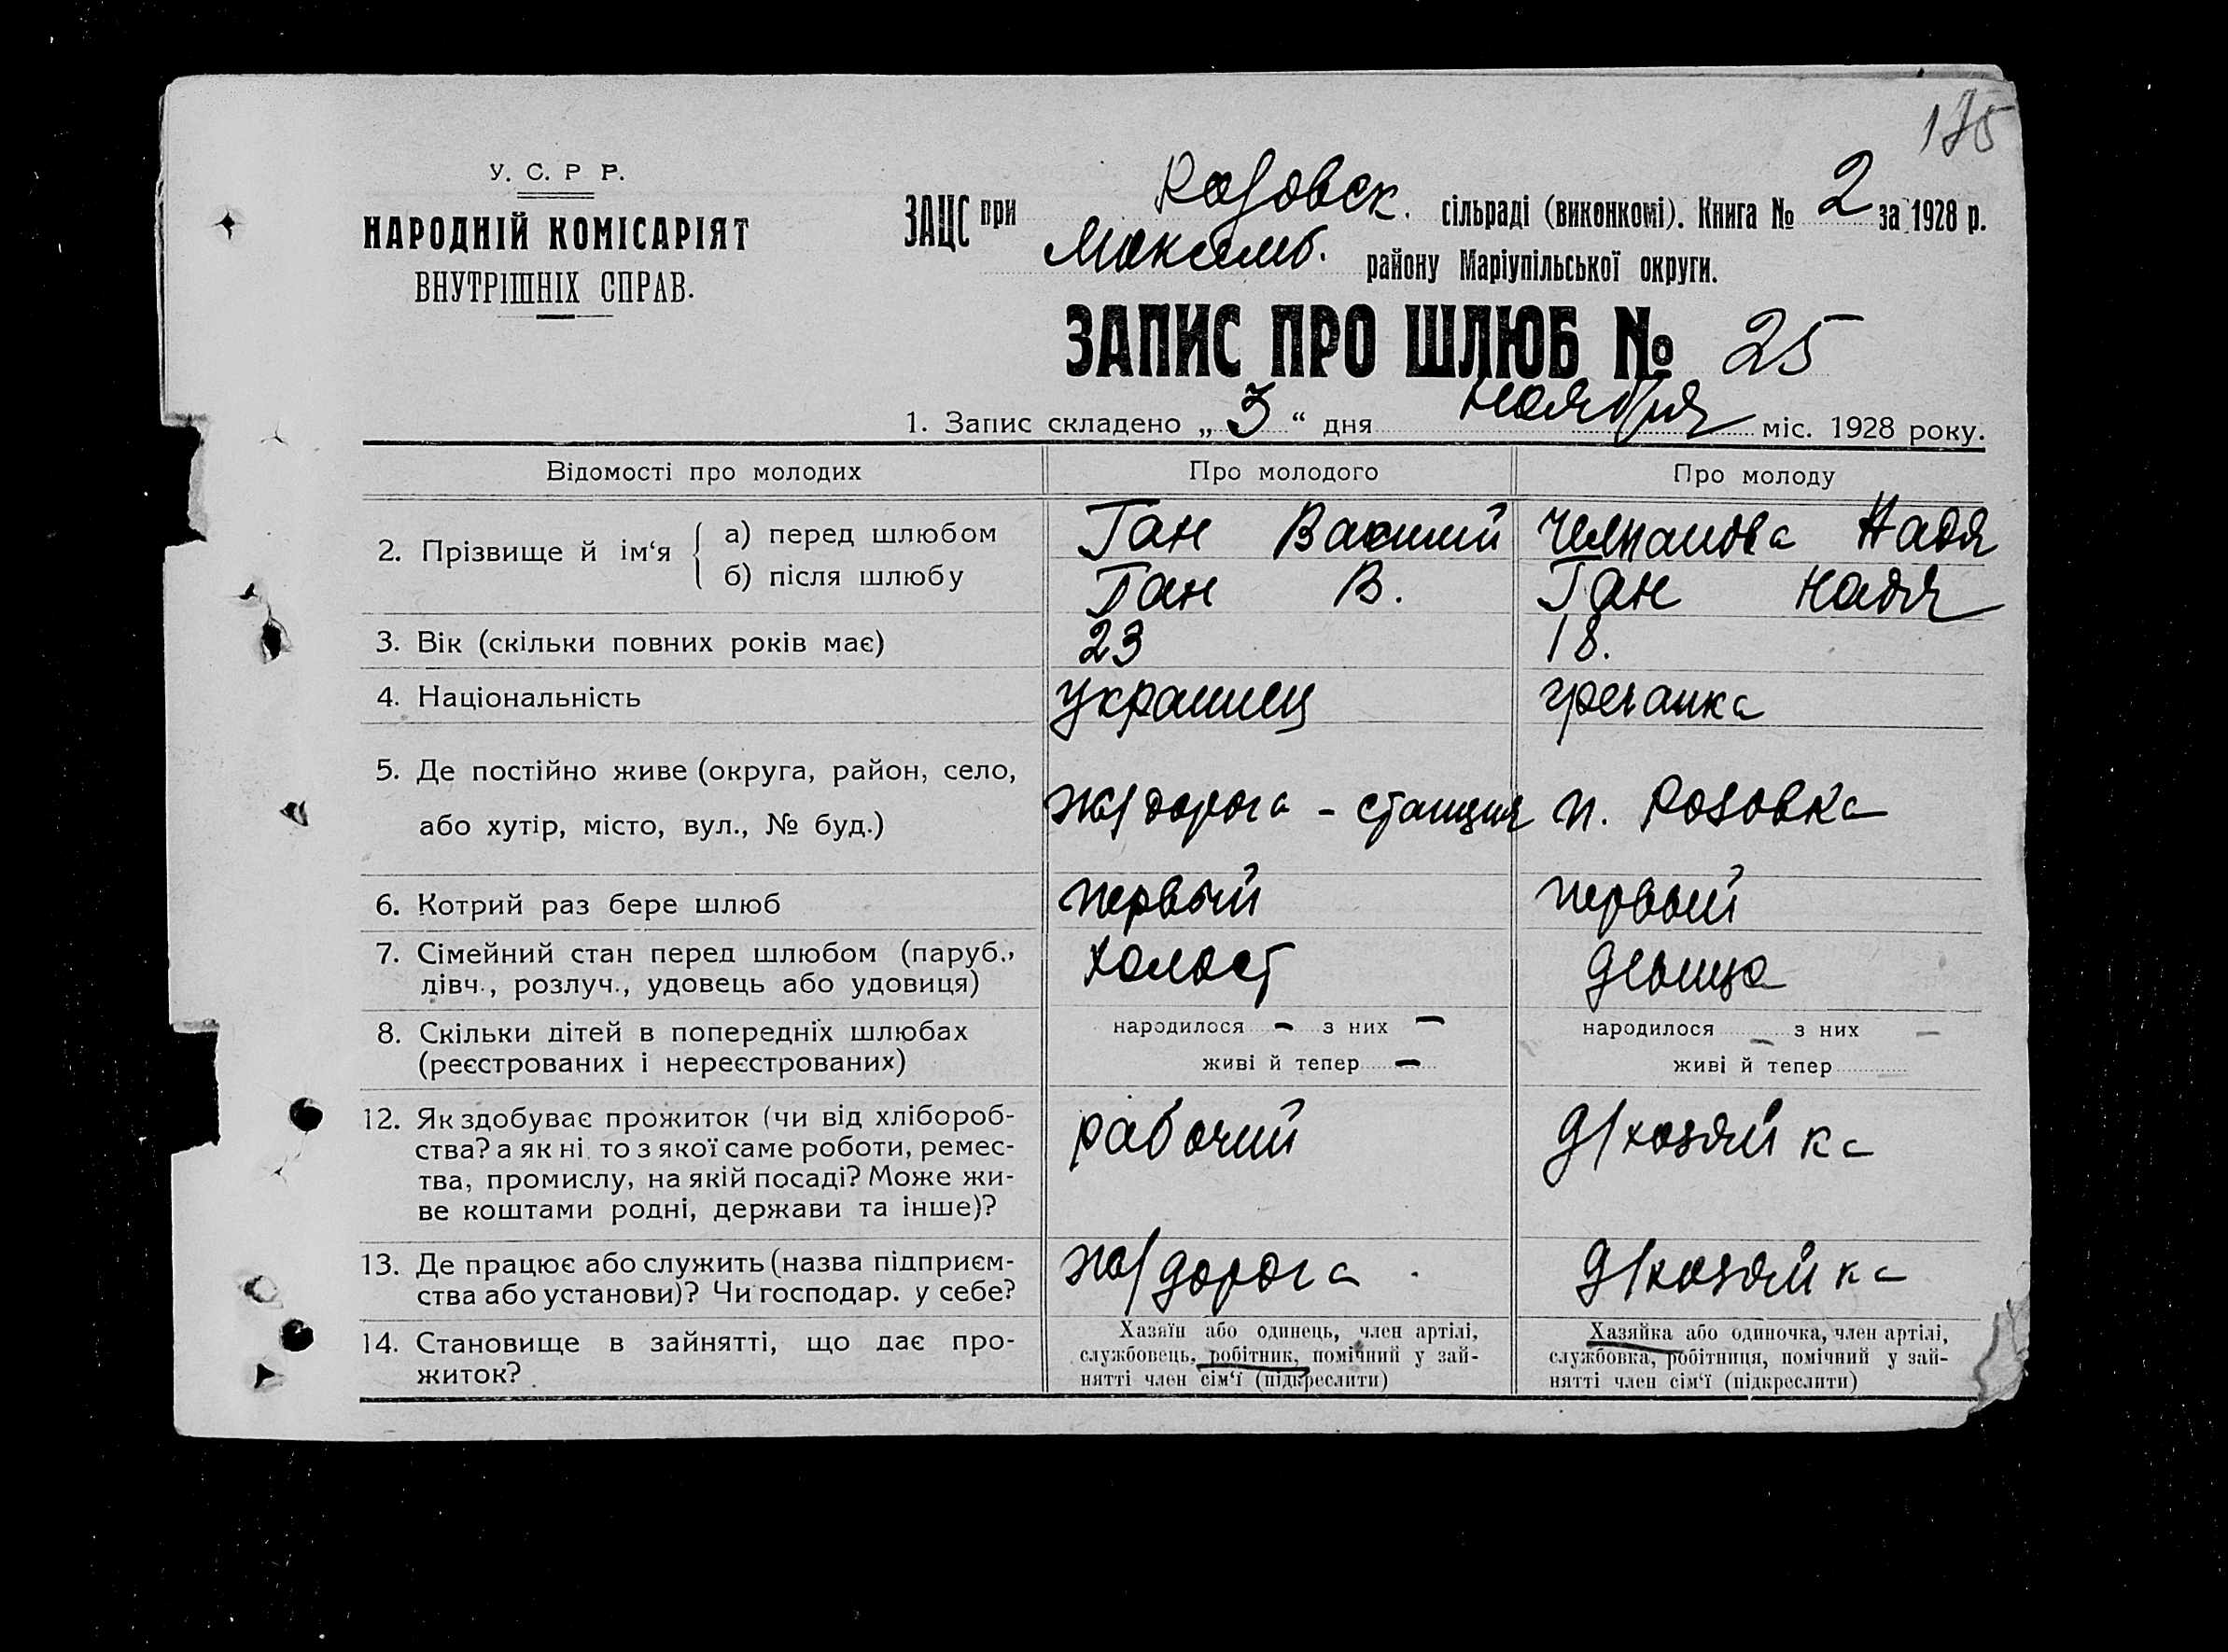 175
У. С. Р Р.
НАРОДНІЙ КОМІСАРІЯТ
ВНУТРІШНІХ СПРАВ.
ЗАЦС при Розовск. сільраді (виконкомі). Книга № 2 за 1928 р.
района Маріупільської округи.
ЗАПИС ПРО ШЛЮБ № 25
1. Запис складено „ 3 “ дня ноября міс. 1928 року.
Відомості про молодих Про молодого Про молоду
2. Прізвище й ім‘я { а) перед шлюбом Ган Василий Челпанова Надя
б) після шлюбу Ган В. Ган Надя
3. Вік (скільки повних років має) 23 18.
4. Національність украинец гречанка
5. Де постійно живе (округа, район, село,
або хутір, місто, вул., № буд.) ж/дорога - станция п. Розовка
6. Котрий раз бере шлюб первый первый
7. Сімейний стан перед шлюбом (паруб.,
дівч., розлуч., удовець або удовиця) холост девица
8. Скільки дітей в попередніх шлюбах народилося - з них - народилося - з них -
(реєстрованих і нереєстрованих) живі й тепер - живі й тепер
12. Як здобуває прожиток (чи від хлібороб-
ства? а як ні то з якої саме роботи, ремес- рабочий д/хозяйка
тва, промислу, на якій посаді? Може жи-
ве коштами родні, держави та інше)?
13. Де працює або служить (назва підприєм- ж/дорога. д/хозяйка
ства або установи)? Чи господар. у себе?
14. Становище в зайнятті, що дає про-
житок?
Хазяїн або одинець, член артілі,
службовець, робітник, помічний у зай-
нятті член сім‘ї (підкреслити)
Хазяйка або одиночка, член артілі,
службовка, робітниця, помічний у зай-
нятті член сім‘ї (підкреслити)